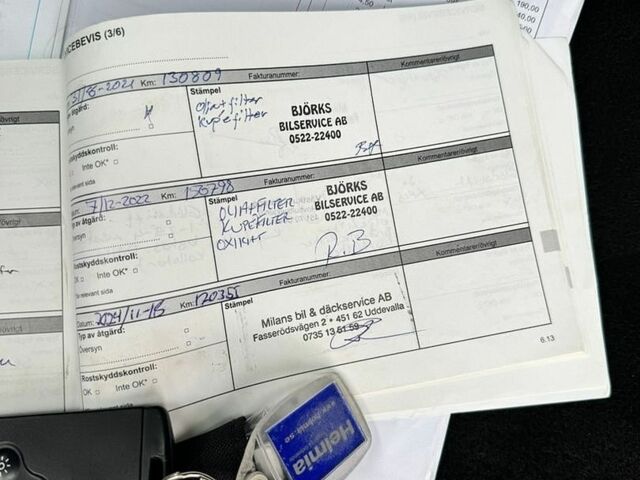 ICEBEVIS (3/6)
31/8-2021 Km: 130809 Fakturanummer: Kommentarer/övrigt
av åtgärd: Stämpel
Olja+filter
Kupefilter
BJÖRKS
BILSERVICE AB
0522-22400
ostskyddskontroll:
Inte OK*
relevant sida
7/12-2022 Km: 156798 Fakturanummer: Kommentarer/övrigt
Typ av åtgärd: Stämpel
Översyn
OLJA+FILTER
KUPEFILTER
BJÖRKS
BILSERVICE AB
0522-22400
R.B
Rostskyddskontroll:
OK Inte OK*
relevant sida
Datum: 2024/11-13 Km: Fakturanummer: Kommentarer/övrigt
Typ av åtgärd: Stämpel
Översyn
Milans bil & däckservice AB
Fasserödsvägen 2 • 451 62 Uddevalla
0735 13 51 59
Rostskyddskontroll:
OK Inte OK*
6.13
Helmia
www.helmia.se
190,00